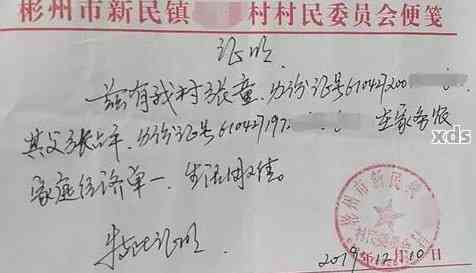 彬州市新民镇 村村民委员会便笺
证明
兹有我村张童,身份证号610427200
其父张占军,身份证号610427197 在家务农
家庭经济单一,生活困难。
特此证明
2019年12月10日
彬州市新民镇
村民委员会
xds